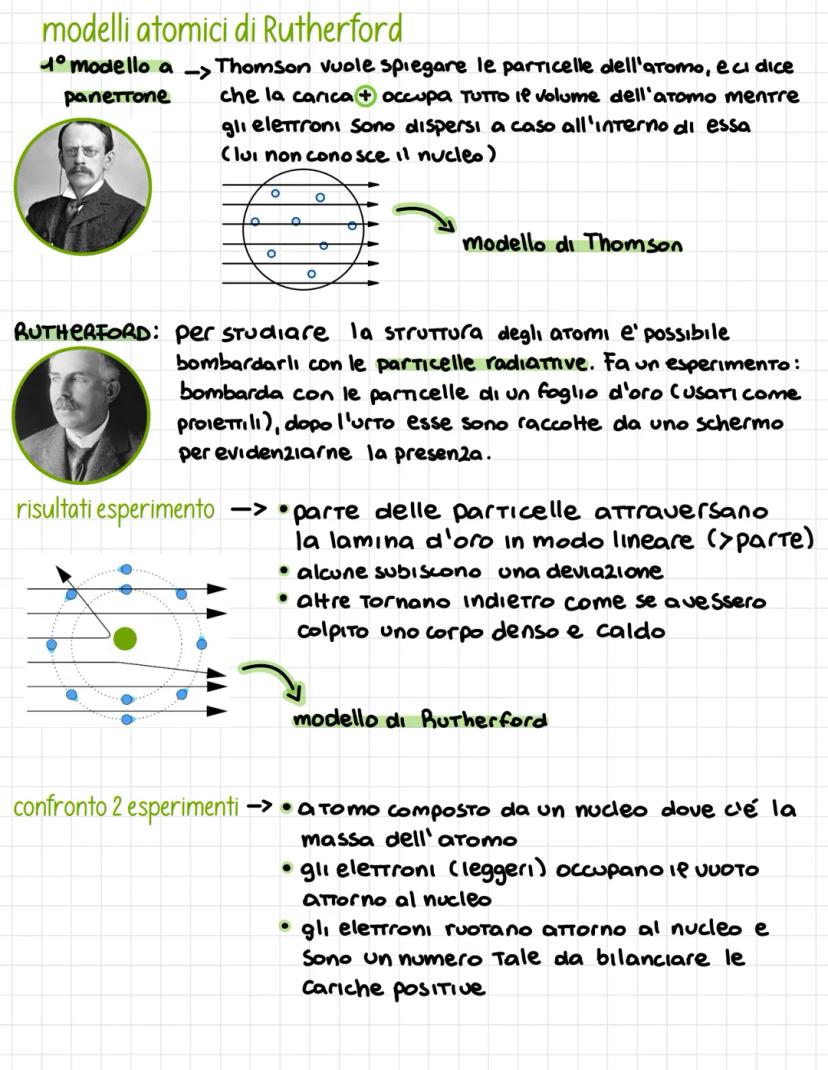 modelli atomici di Rutherford
1° modello a -> Thomson vuole spiegare le particelle dell'atomo, e ci dice
panettone che la carica + occupa tutto il volume dell'atomo mentre
gli elettroni sono dispersi a caso all'interno di essa
(lui non conosce il nucleo)
modello di Thomson
RUTHERFORD: per studiare la struttura degli atomi e' possibile
bombardarli con le particelle radiattive. Fa un esperimento:
bombarda con le particelle di un foglio d'oro (usati come
proiettili), dopo l'urto esse sono raccolte da uno schermo
per evidenziarne la presenza.
risultati esperimento -> • parte delle particelle attraversano
la lamina d'oro in modo lineare (>parte)
• alcune subiscono una deviazione
• altre tornano indietro come se avessero
colpito uno corpo denso e caldo
modello di Rutherford
confronto 2 esperimenti -> • atomo composto da un nucleo dove c'é la
massa dell'atomo
• gli elettroni (leggeri) occupano il vuoto
attorno al nucleo
• gli elettroni ruotano attorno al nucleo e
sono un numero tale da bilanciare le
cariche positive